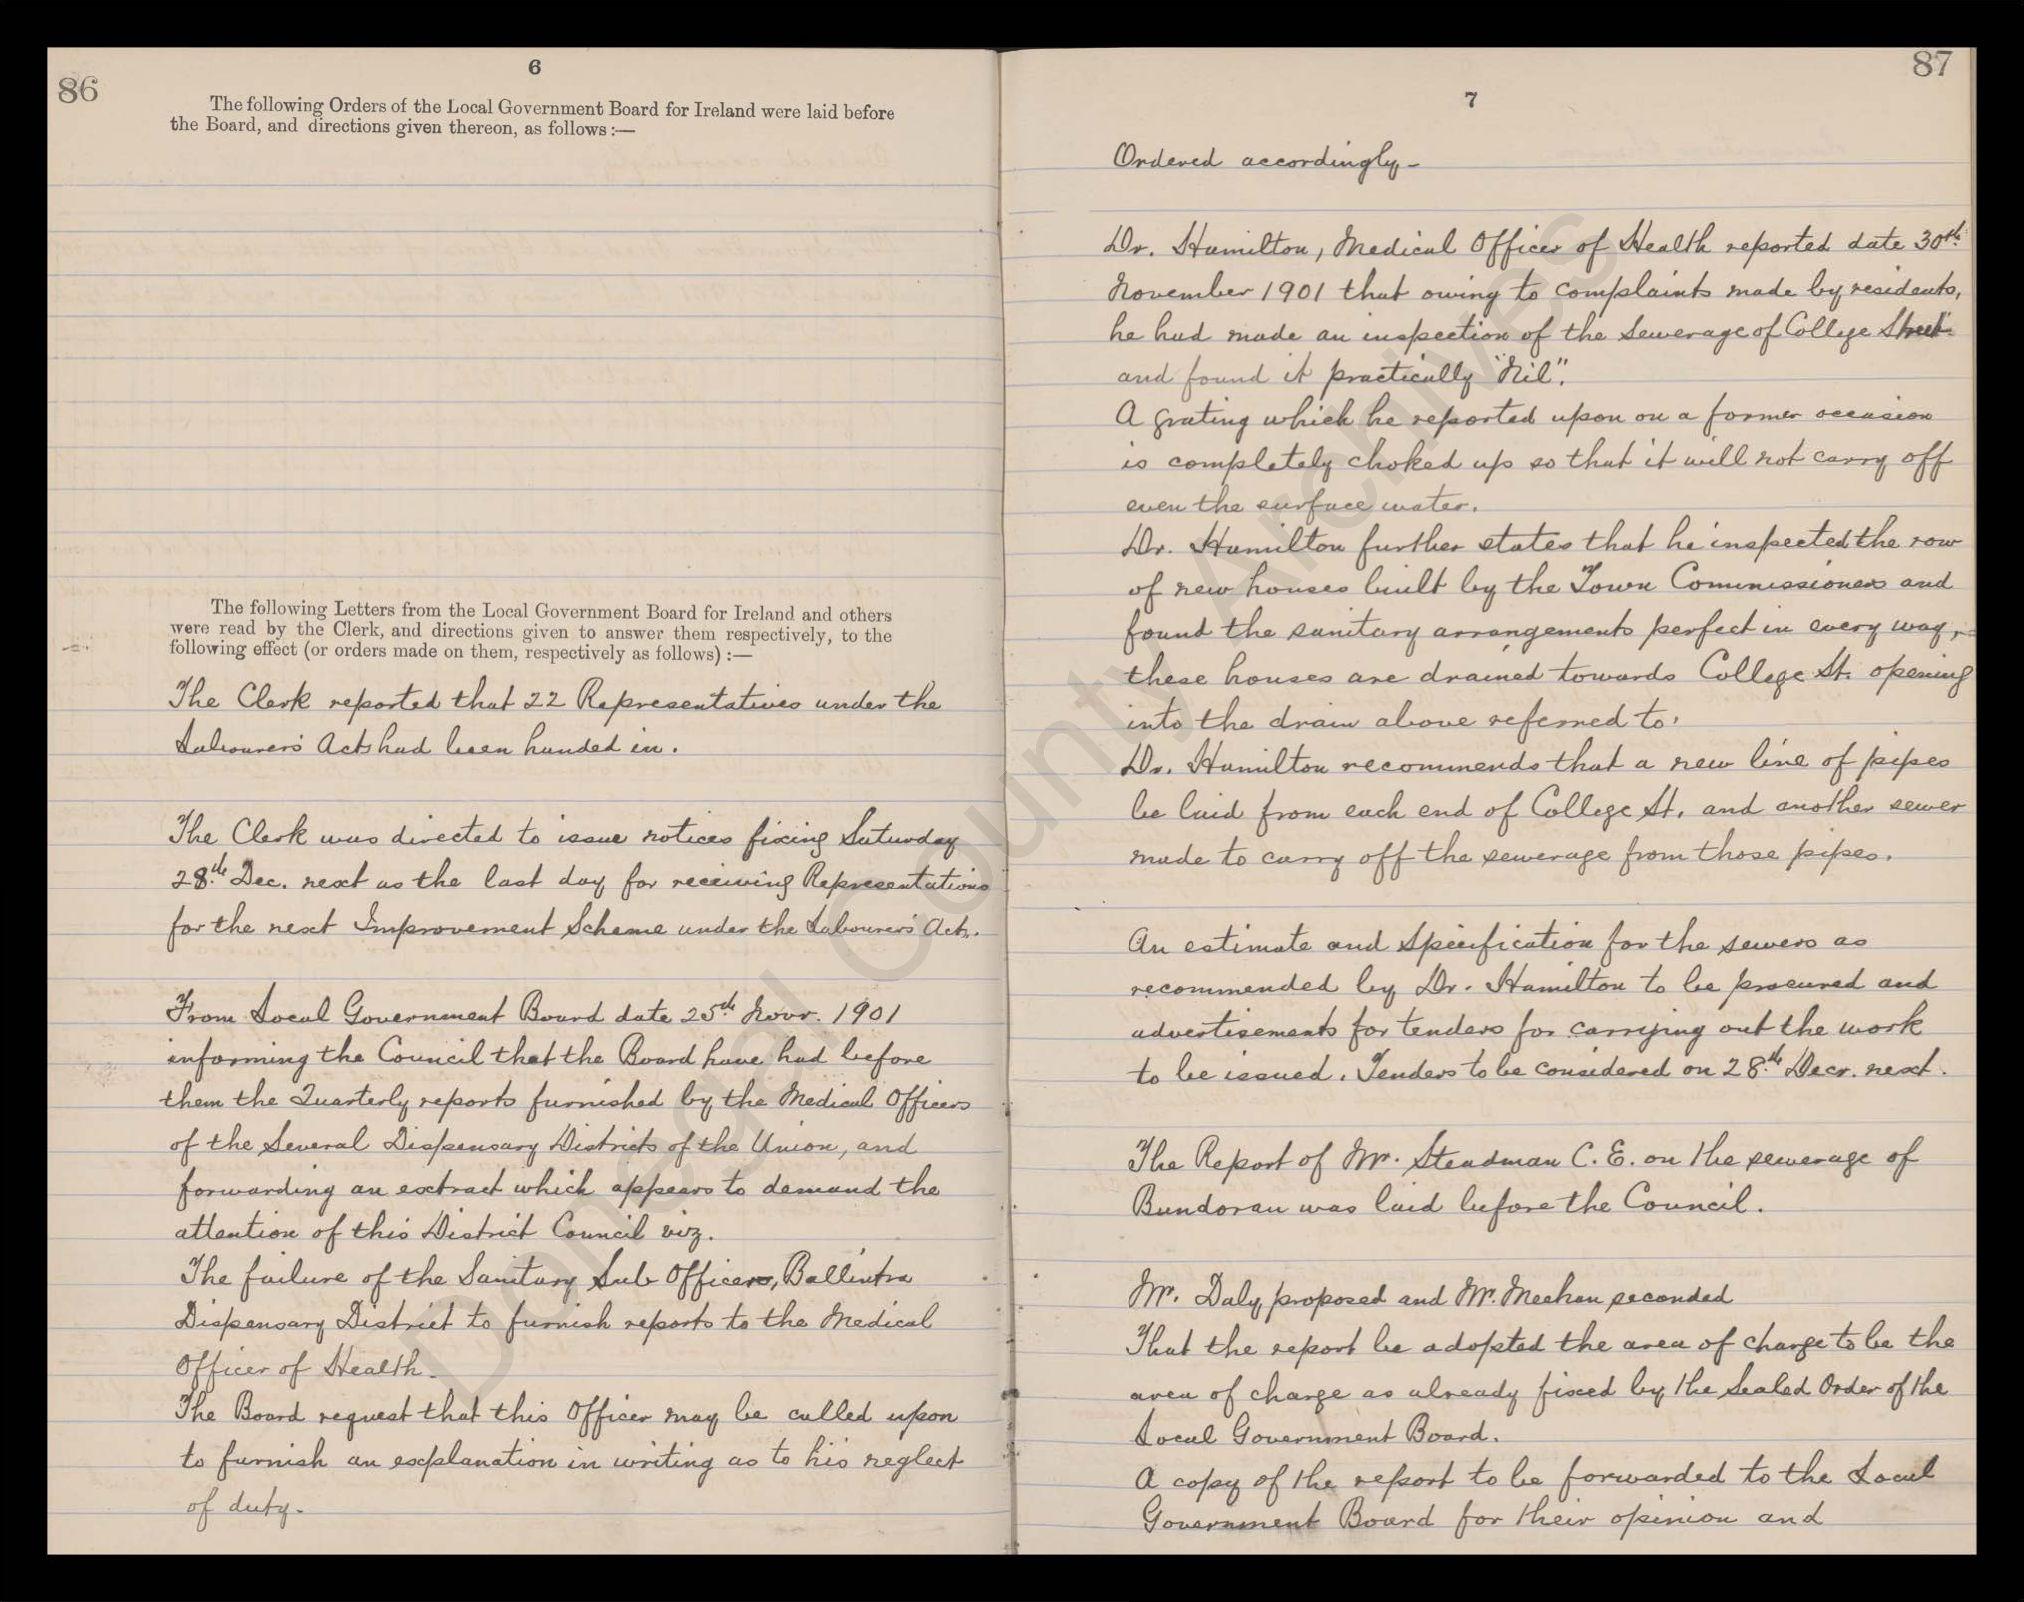 86
6
The following Orders of the Local Government Board for Ireland were laid before
the Board, and directions given thereon, as follows :—
The following Letters from the Local Government Board for Ireland and others
were read by the Clerk, and directions given to answer them respectively, to the
following effect (or orders made on them, respectively as follows) :—
The Clerk reported that 22 Representatives under the
Labourers' Acts had been handed in.
The Clerk was directed to issue notices fixing Saturday
28th Dec. next as the last day for receiving Representations
for the next Improvement Scheme under the Labourers' Acts.
From Local Government Board date 25th Novr. 1901
informing the Council that the Board have had before
them the Quarterly reports furnished by the Medical Officers
of the Several Dispensary Districts of the Union, and
forwarding an extract which appears to demand the
attention of this District Council viz.
The failure of the Sanitary Sub Officer, Ballintra
Dispensary District to furnish reports to the Medical
Officer of Health.
The Board request that this Officer may be called upon
to furnish an explanation in writing as to his neglect
of duty.
87
7
Ordered accordingly -
Dr. Hamilton, Medical Officer of Health reported date 30th
November 1901 that owing to complaints made by residents,
he had made an inspection of the Sewerage of College Street
and found it practically "Nil".
A grating which he reported upon on a former occasion
is completely choked up so that it will not carry off
even the surface water.
Dr. Hamilton further states that he inspected the row
of new houses built by the Town Commissioners and
found the sanitary arrangements perfect in every way,
these houses are drained towards College St. opening
into the drain above referred to.
Dr. Hamilton recommends that a new line of pipes
be laid from each end of College St. and another sewer
made to carry off the sewerage from those pipes.
An estimate and Specification for the sewers as
recommended by Dr. Hamilton to be procured and
advertisements for tenders for carrying out the work
to be issued. Tenders to be considered on 28th Decr. next.
The Report of Mr. Steadman C. E. on the sewerage of
Bundoran was laid before the Council.
Mr. Daly proposed and Mr. Meehan seconded
That the report be adopted the area of charge to be the
area of charge as already fixed by the Sealed Order of the
Local Government Board.
A copy of the report to be forwarded to the Local
Government Board for their opinion and
Donegal County Archives